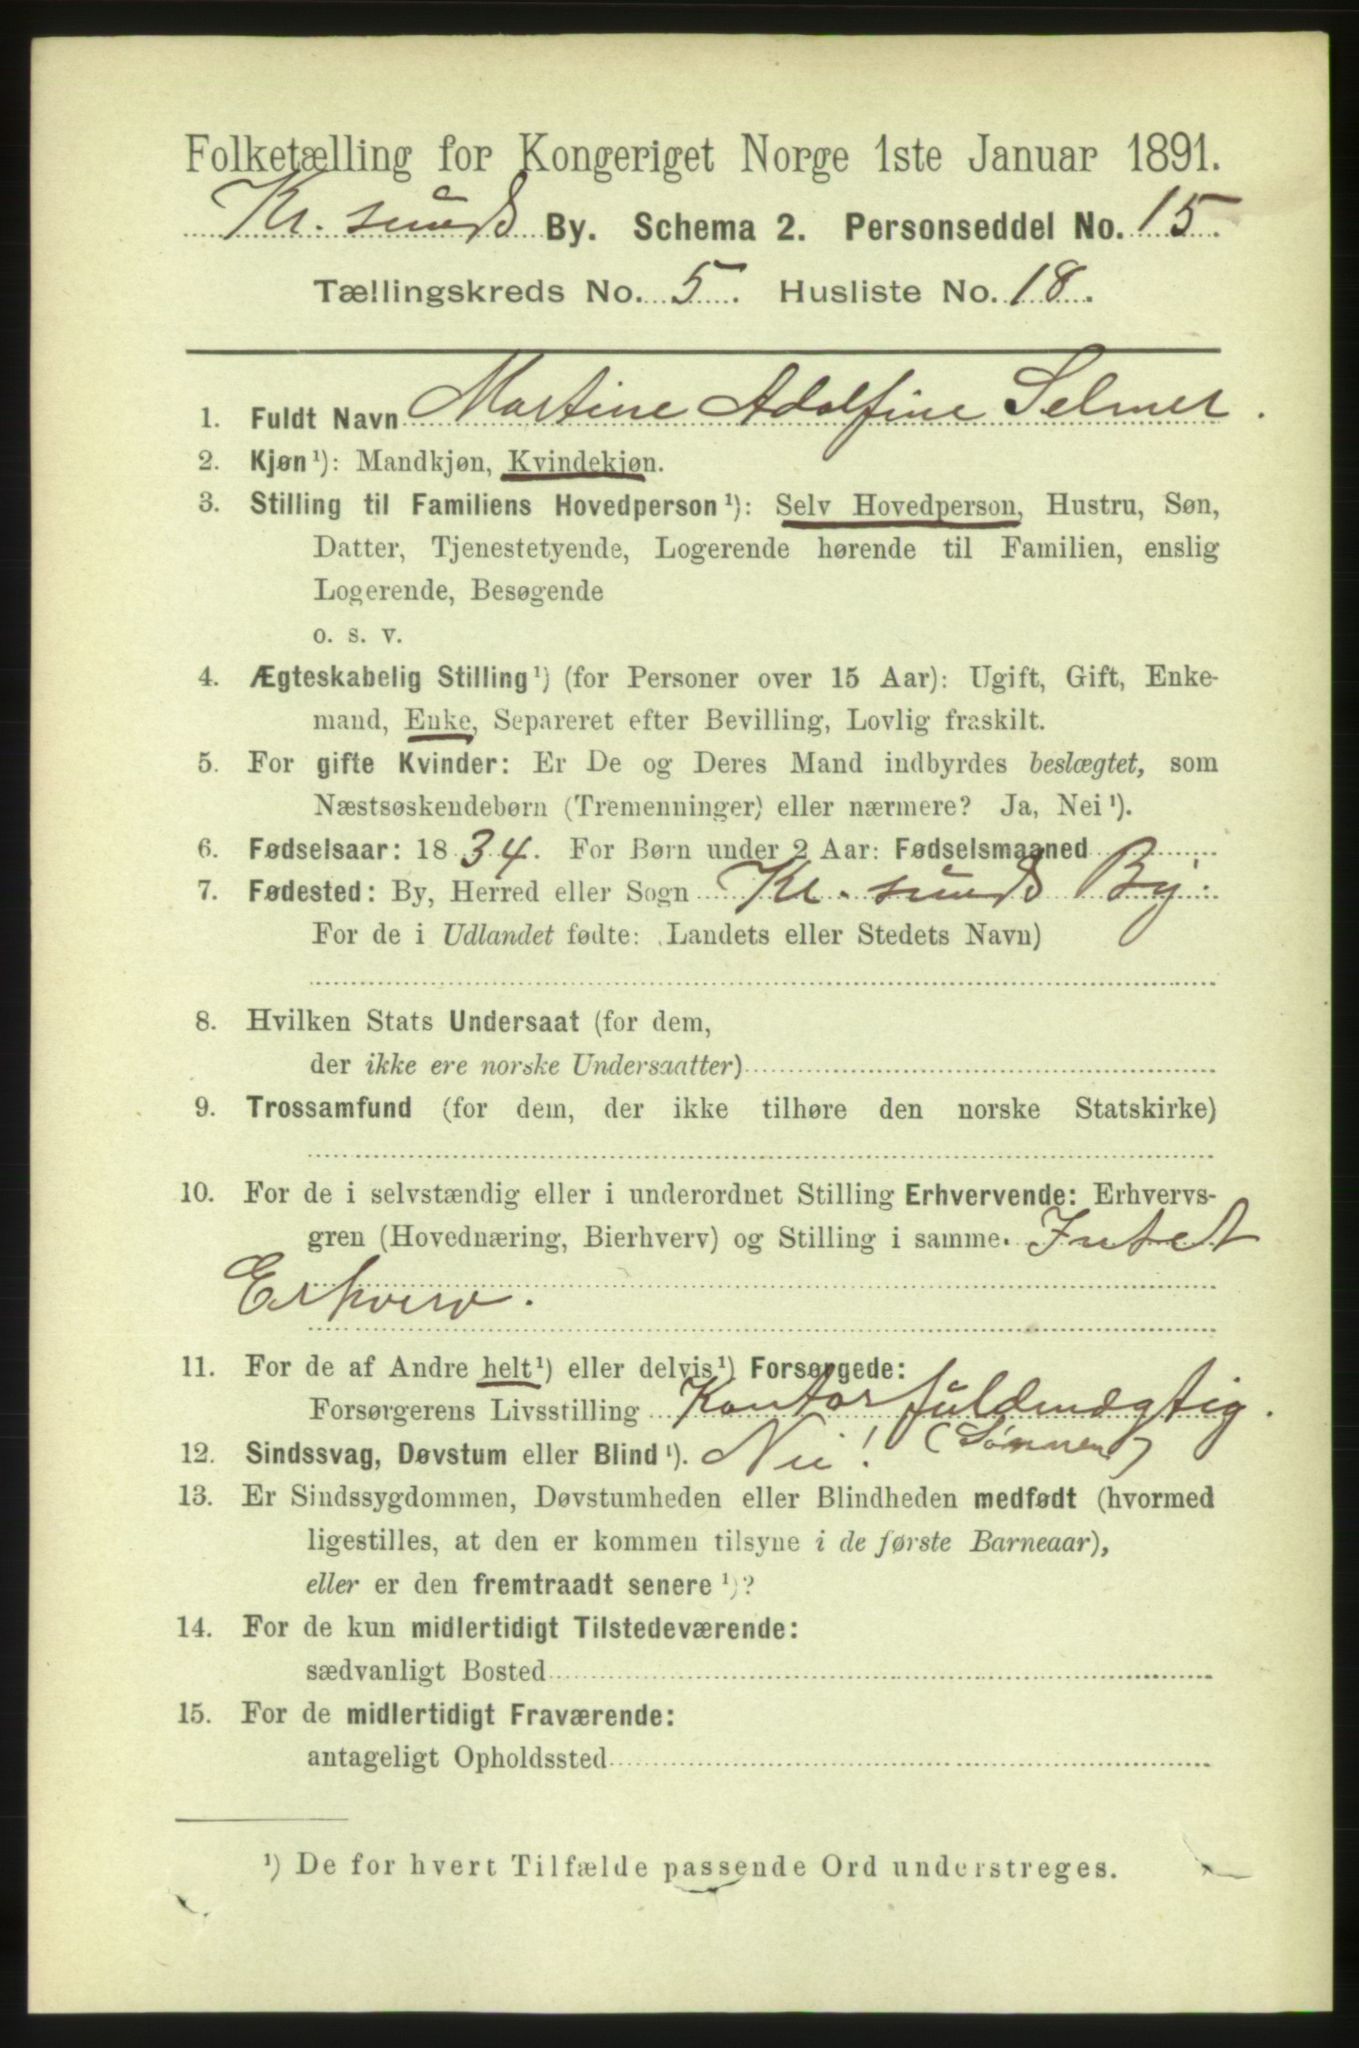 Folketælling for Kongeriget Norge 1ste Januar 1891.
Kr. sunds By. Schema 2. Personseddel No. 15.
Tællingskreds No. 5. Husliste No. 18.
1. Fuldt Navn Martine Adolfine Selmer.
2. Kjøn¹): Mandkjøn, Kvindekjøn.
3. Stilling til Familiens Hovedperson¹): Selv Hovedperson, Hustru, Søn,
Datter, Tjenestetyende, Logerende hørende til Familien, enslig
Logerende, Besøgende
o. s. v.
4. Ægteskabelig Stilling¹) (for Personer over 15 Aar): Ugift, Gift, Enke-
mand, Enke, Separeret efter Bevilling, Lovlig fraskilt.
5. For gifte Kvinder: Er De og Deres Mand indbyrdes beslægtet, som
Næstsøskendebørn (Tremenninger) eller nærmere? Ja, Nei¹).
6. Fødselsaar: 1834. For Børn under 2 Aar: Fødselsmaaned
7. Fødested: By, Herred eller Sogn Kr. sunds By.
For de i Udlandet fødte: Landets eller Stedets Navn)
8. Hvilken Stats Undersaat (for dem,
der ikke ere norske Undersaatter)
9. Trossamfund (for dem, der ikke tilhøre den norske Statskirke)
10. For de i selvstændig eller i underordnet Stilling Erhvervende: Erhvervs-
gren (Hovednæring, Bierhverv) og Stilling i samme. Intet
Erhverv.
11. For de af Andre helt¹) eller delvis¹) Forsørgede:
Forsørgerens Livsstilling Kontorfuldmægtig.
(Sønnen)
12. Sindssvag, Døvstum eller Blind¹). Nei!
13. Er Sindssygdommen, Døvstumheden eller Blindheden medfødt (hvormed
ligestilles, at den er kommen tilsyne i de første Barneaar),
eller er den fremtraadt senere¹)?
14. For de kun midlertidigt Tilstedeværende:
sædvanligt Bosted
15. For de midlertidigt Fraværende:
antageligt Opholdssted
¹) De for hvert Tilfælde passende Ord understreges.